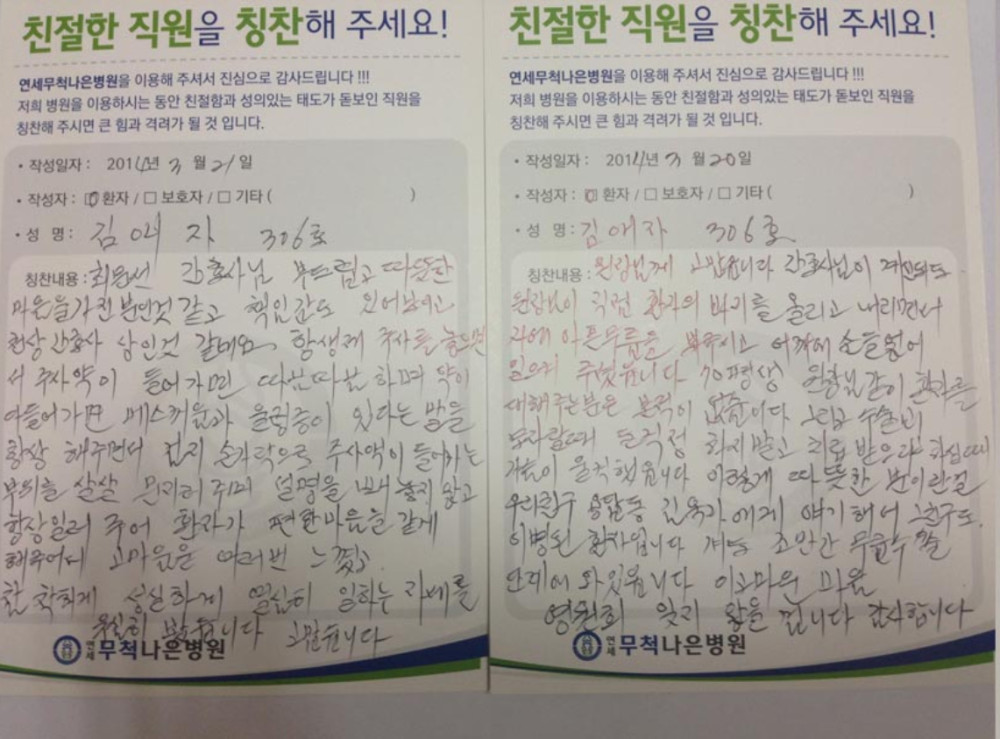 친절한 직원을 칭찬해 주세요!
연세무척나은병원을 이용해 주셔서 진심으로 감사드립니다 !!!
저희 병원을 이용하시는 동안 친절함과 성의있는 태도가 돋보인 직원을
칭찬해 주시면 큰 힘과 격려가 될 것 입니다.
• 작성일자 : 2014년 3 월 21 일
• 작성자 : □ 환자 / □ 보호자 / □ 기타 ( )
• 성 명 : 김애자 306호
칭찬내용 : 간호사님 부드럽고 따뜻한
마음을 가진분인것 같고 책임감도 있어보이고
천상 간호사 상인것 같네요 항생제 주사를 놓으면
서 주사약이 들어가면 따끔따끔 하며 약이
다들어가면 메스꺼움과 울렁증이 있다는 말을
항상 해주면서 검지 손가락으로 주사약이 들어가는
부위를 살살 문질러 주며 설명을 빼놓지 않고
항상일러 주어 환자가 편한마음을 갖게
해주어서 고마움은 여러번 느꼈고
참 착하게 성실하게 열심히 일하는 자세를
봤습니다 고맙습니다
연세무척나은병원
친절한 직원을 칭찬해 주세요!
연세무척나은병원을 이용해 주셔서 진심으로 감사드립니다 !!!
저희 병원을 이용하시는 동안 친절함과 성의있는 태도가 돋보인 직원을
칭찬해 주시면 큰 힘과 격려가 될 것 입니다.
• 작성일자 : 2014년 3 월 20 일
• 작성자 : □ 환자 / □ 보호자 / □ 기타 ( )
• 성 명 : 김애자 306호
칭찬내용 : 원장님께 고맙습니다 간호사님이 계신데도
원장님이 직접 환자의 바지를 올리고 내리면서
아픈무릎을 봐주시고 어깨에 손을넣어
일으켜 주셨습니다 70평생 원장님같이 환자를
대해주는분은 본적이 없습니다 그리고 수술비
모자랄때 걱정 하지말고 치료 받으라 하실때
가슴이 울컥했습니다 이렇게 따뜻한 분이란걸
우리친구 에게 얘기해서 그친구도
이병원 환자입니다 조만간 무릎수술
단계에 와있습니다 이고마운 마음
영원히 잊지 않을 겁니다 감사합니다
연세무척나은병원